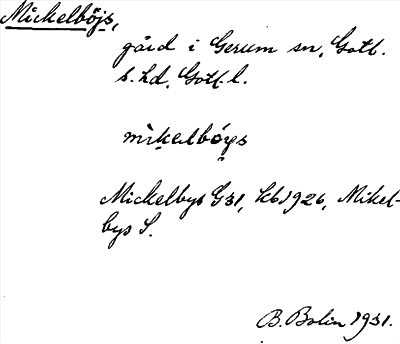 Mickelböjs,
gård i Gerum sn, Gotl.
s. hd, Gotl. l.
mikelböys
Mickelbys G31, Kb 1926, Mikel-
bys S.
B. Bolin 1931.